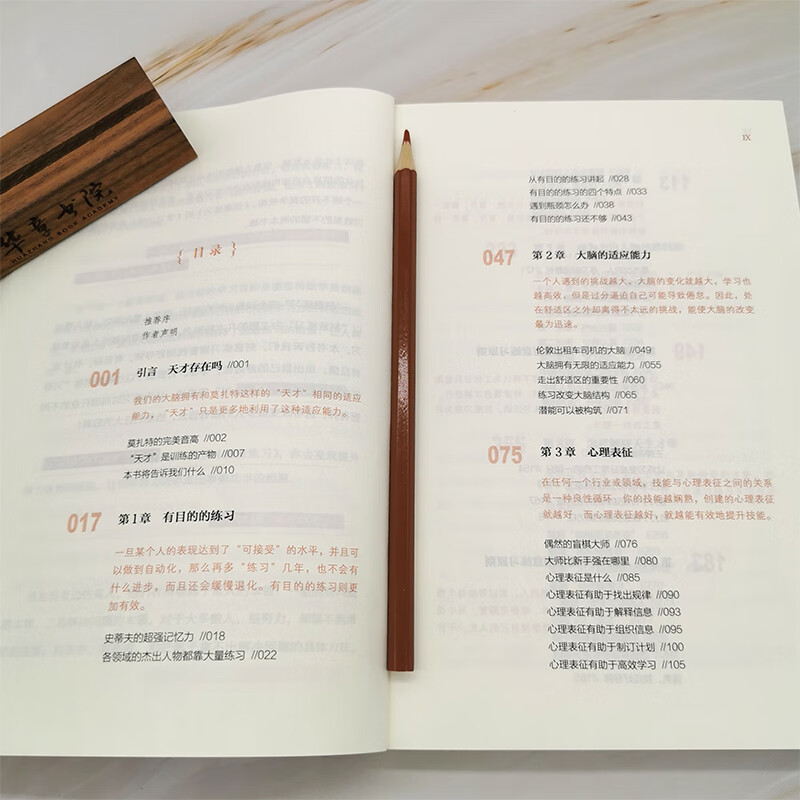 华章书院
HUAZHANG BOOK ACADEMY
{ 目录 }
推荐序
作者声明
001 引言 天才存在吗 //001
我们的大脑拥有和莫扎特这样的“天才”相同的适应
能力，“天才”只是更多地利用了这种适应能力。
莫扎特的完美音高 //002
“天才”是训练的产物 //007
本书将告诉我们什么 //010
017 第1章 有目的的练习
一旦某个人的表现达到了“可接受”的水平，并且可
以做到自动化，那么再多“练习”几年，也不会有
什么进步，而且还会缓慢退化。有目的的练习则更
加有效。
史蒂夫的超强记忆力 //018
各领域的杰出人物都靠大量练习 //022
IX
从有目的的练习讲起 //028
有目的的练习的四个特点 //033
遇到瓶颈怎么办 //038
有目的的练习还不够 //043
047 第2章 大脑的适应能力
一个人遇到的挑战越大，大脑的变化就越大，学习也
越高效，但是过分逼迫自己可能导致倦怠。因此，处
在舒适区之外却离得不太远的挑战，能使大脑的改变
最为迅速。
伦敦出租车司机的大脑 //049
大脑拥有无限的适应能力 //055
走出舒适区的重要性 //060
练习改变大脑结构 //065
潜能可以被构筑 //071
075 第3章 心理表征
在任何一个行业或领域，技能与心理表征之间的关系
是一种良性循环：你的技能越娴熟，创建的心理表征
就越好；而心理表征越好，就越能有效地提升技能。
偶然的盲棋大师 //076
大师比新手强在哪里 //080
心理表征是什么 //085
心理表征有助于找出规律 //090
心理表征有助于解释信息 //093
心理表征有助于组织信息 //095
心理表征有助于制订计划 //100
心理表征有助于高效学习 //105